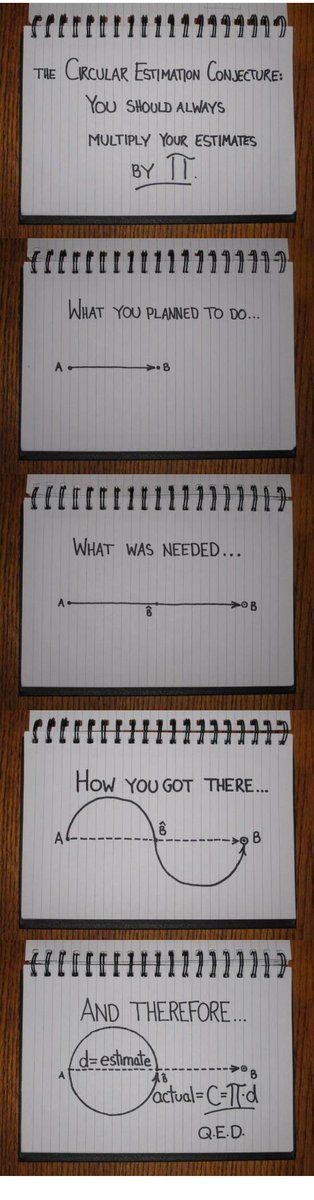 THE CIRCULAR ESTIMATION CONJECTURE:
YOU SHOULD ALWAYS
MULTIPLY YOUR ESTIMATES
BY π.
WHAT YOU PLANNED TO DO...
A B
WHAT WAS NEEDED...
A B̂ B
HOW YOU GOT THERE...
A B̂ B
AND THEREFORE...
d=estimate
A B̂ B
actual=C=π·d
Q.E.D.